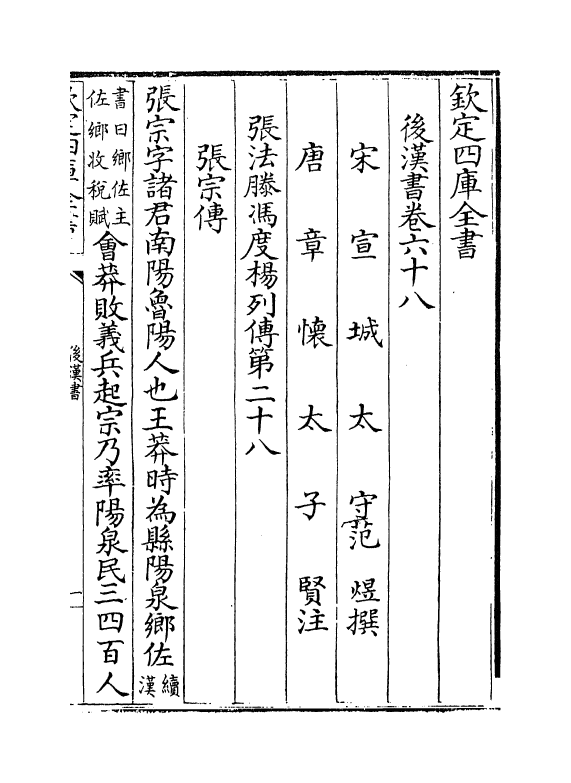 欽定四庫全書
後漢書卷六十八
宋宣城太守范煜撰
唐章懐太子賢注
張法滕馮度楊列傳第二十八
張宗傳
張宗字諸君南陽魯陽人也王莽時為縣陽泉鄉佐續漢
書曰鄉佐主佐鄉收稅賦會莽敗義兵起宗乃率陽泉民三四百人
後漢書